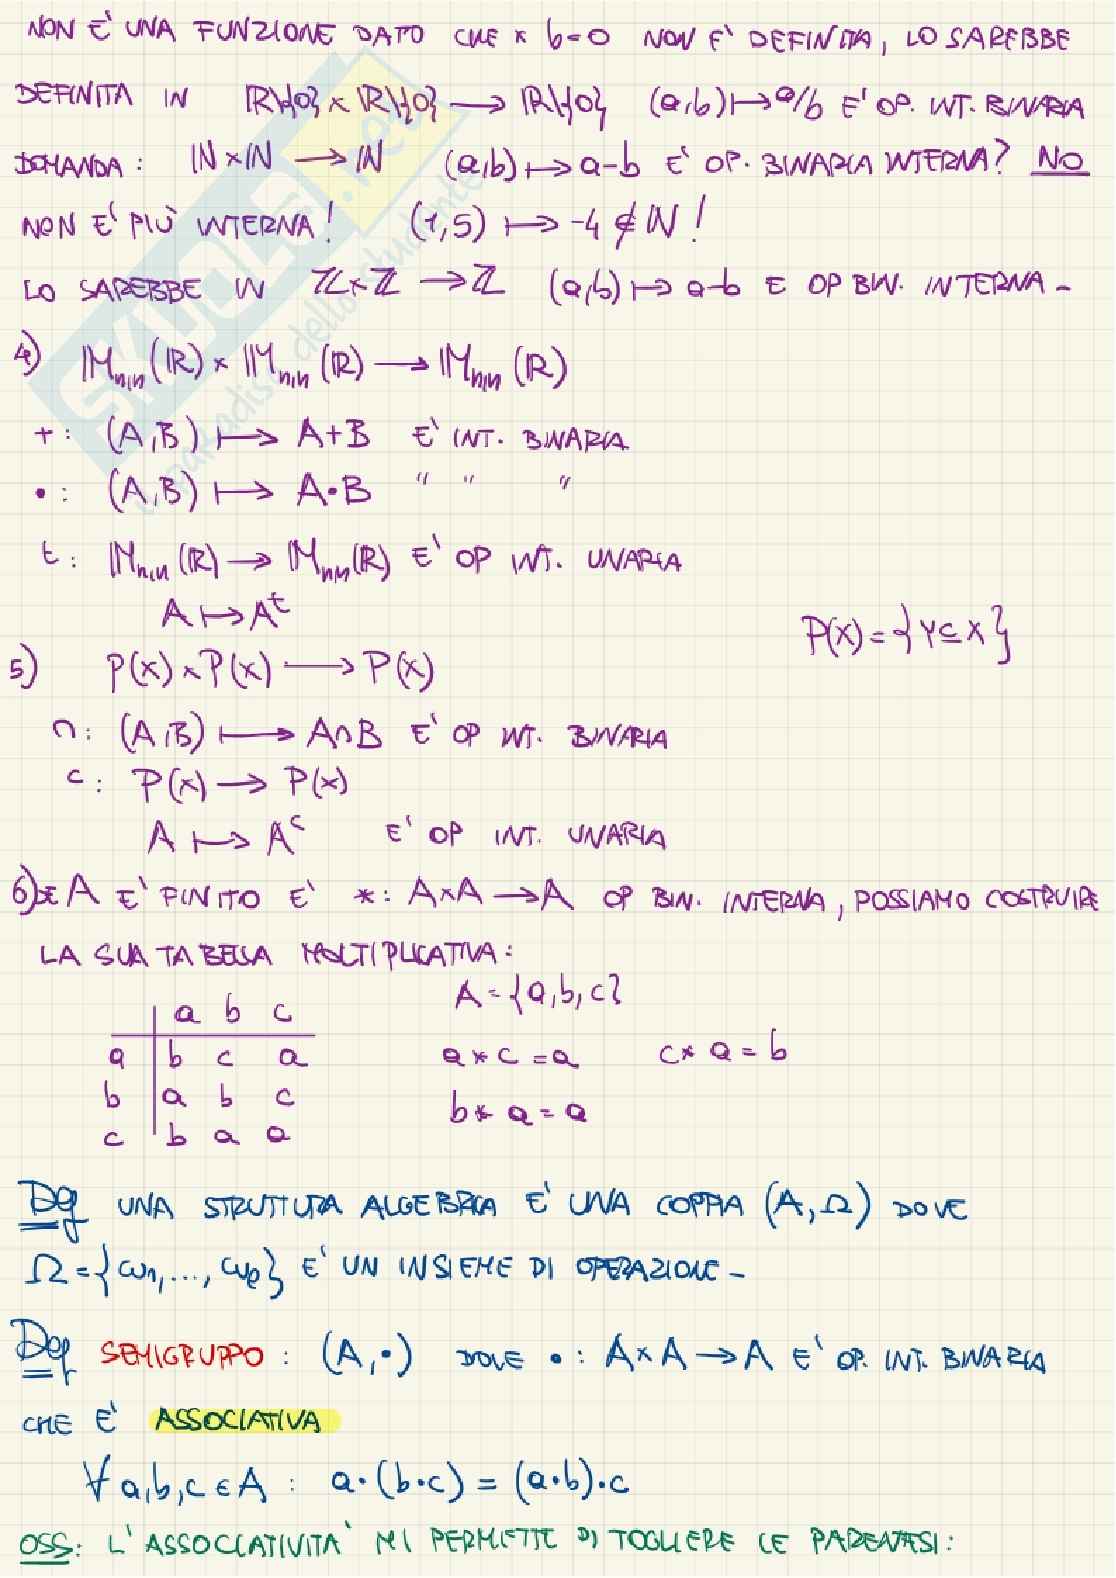 NON E' UNA FUNZIONE DATO CHE x b=0 NON E' DEFINITA, LO SAREBBE
DEFINITA IN ℝ\{0} × ℝ\{0} ⟶ ℝ\{0} (a,b)⟼a/b E' OP. INT. BINARIA
DOMANDA: ℕ×ℕ ⟶ ℕ (a,b)⟼a-b E' OP. BINARIA INTERNA? NO
NON E' PIÙ INTERNA! (1,5) ⟼ -4 ∉ ℕ!
LO SAREBBE IN ℤ×ℤ ⟶ ℤ (a,b)⟼a-b E OP BIN. INTERNA -
4) 𝕄n,n(ℝ) × 𝕄n,n(ℝ) ⟶ 𝕄n,n(ℝ)
+: (A,B) ⟼ A+B E' INT. BINARIA
•: (A,B) ⟼ A•B " " "
t: 𝕄n,n(ℝ) ⟶ 𝕄n,n(ℝ) E' OP INT. UNARIA
A ⟼ Aᵗ
P(X)={Y⊆X}
5) P(X)×P(X) ⟶ P(X)
∩: (A,B) ⟼ A∩B E' OP INT. BINARIA
c: P(X) ⟶ P(X)
A ⟼ Aᶜ E' OP INT. UNARIA
6) SE A E' FINITO E' *: A×A ⟶ A OP BIN. INTERNA, POSSIAMO COSTRUIRE
LA SUA TABELLA MOLTIPLICATIVA:
A={a,b,c}
a b c
a b c a
b a b c
c b a a
a*c=a c*a=b
b*a=a
Def UNA STRUTTURA ALGEBRICA E' UNA COPPIA (A,Ω) DOVE
Ω={ω₁,...,ωₑ} E' UN INSIEME DI OPERAZIONE -
Def SEMIGRUPPO: (A,•) DOVE •: A×A ⟶ A E' OP. INT. BINARIA
CHE E' ASSOCIATIVA
∀a,b,c∈A: a•(b•c)=(a•b)•c
OSS: L'ASSOCIATIVITA' MI PERMETTE DI TOGLIERE LE PARENTESI:
SKUOLA.net
una
paradiso dello studente